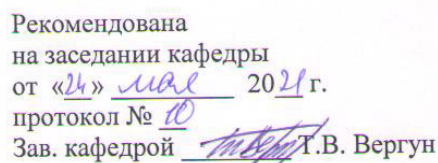 Рекомендована
на заседании кафедры
от «24» мая 2021 г.
протокол № 10
Зав. кафедрой Т.В. Вергун